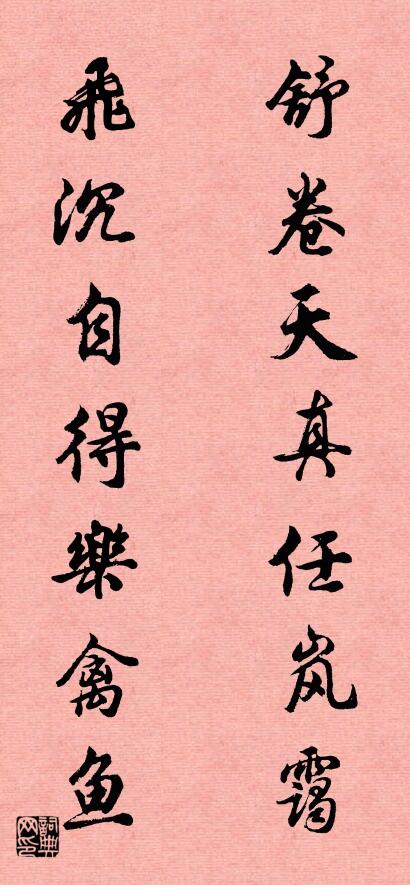 舒卷天真任岚霭
飞沉自得樂禽鱼
詞典网印